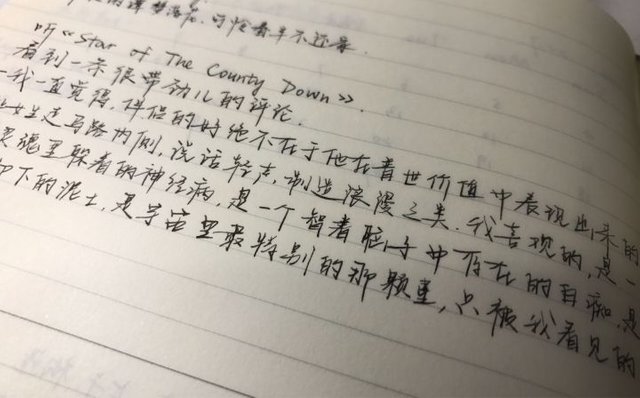 潭梦落花，可怜春半不还家.
听《Star of The County Down》.
看到一条很带劲儿的评论.
一我一直觉得，伴侣的好绝不在于他在普世价值中表现出来的
女生走马路内侧，说话轻声，制造浪漫之类.我喜欢的，是一
灵魂里躲着的神经病，是一个智者脑子中存在的白痴，是
下的泥土，是宇宙里最特别的那颗星，只被我看见的